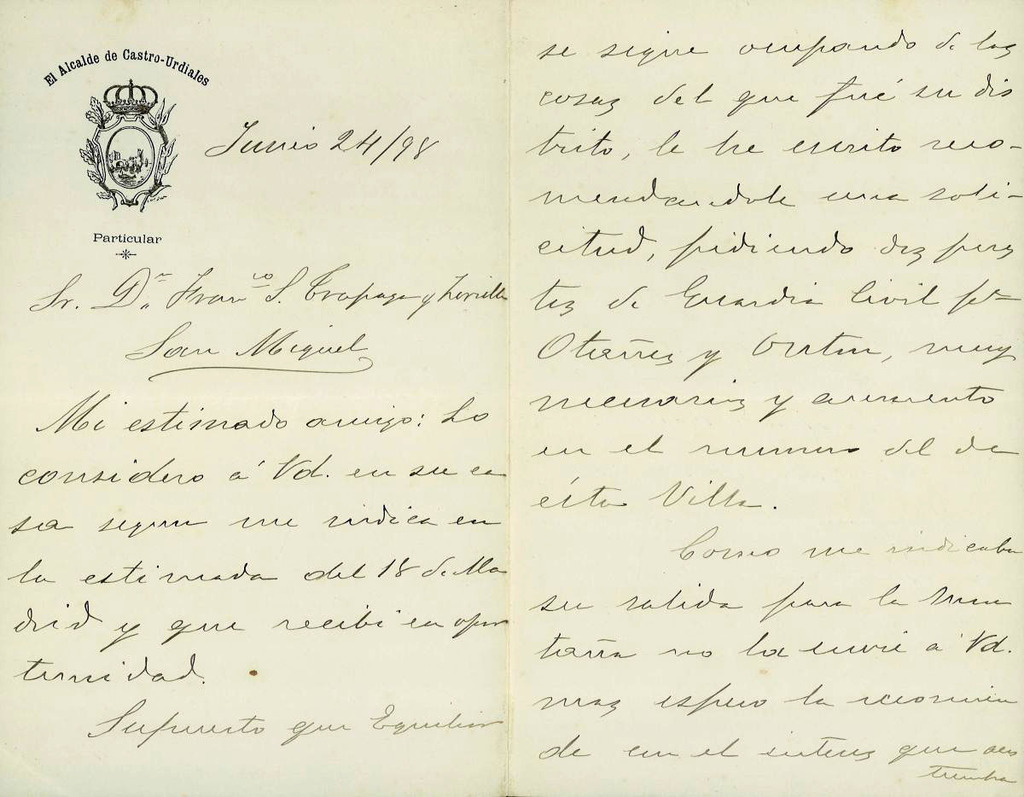 El Alcalde de Castro-Urdiales
Particular
Junio 24/98
Sr. Dn. Franco S. Trapaga y Zorrilla
San Miguel
Mi estimado amigo: Lo
considero á Vd. en su ca
sa segun me indica en
la estimada del 18 de Ma
drid y que recibi en opor
tunidad.
Supuesto que Equilior
se sigue ocupando de las
cosas del que fué su dis
trito, le he escrito reco-
mendandole una soli-
citud, pidiendo dos pues
tos de Guardia Civil pa
Otañes y Ontón, muy
necesarios y aumento
en el numero del de
ésta Villa.
Como me indicaba
su salida para la Mon
taña no la envié á Vd.
mas espero la recomien
de con el interes que acos
tumbra